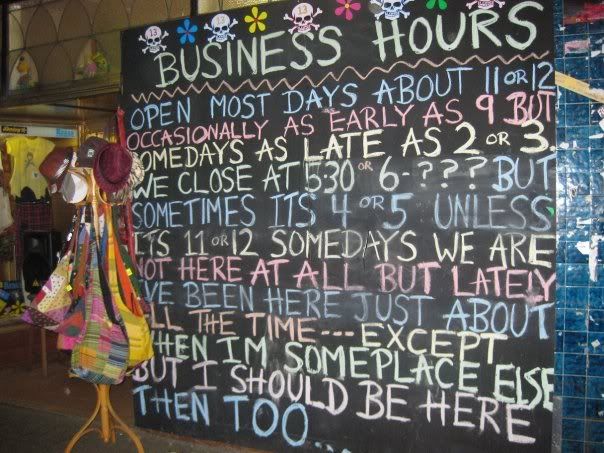 BUSINESS HOURS
OPEN MOST DAYS ABOUT 11 OR 12
OCCASIONALLY AS EARLY AS 9 BUT
SOMEDAYS AS LATE AS 2 OR 3.
WE CLOSE AT 530 OR 6-??? BUT
SOMETIMES ITS 4 OR 5 UNLESS
ITS 11 OR 12 SOMEDAYS WE ARE
NOT HERE AT ALL BUT LATELY
I'VE BEEN HERE JUST ABOUT
ALL THE TIME---EXCEPT
WHEN IM SOMEPLACE ELSE
BUT I SHOULD BE HERE
THEN TOO...